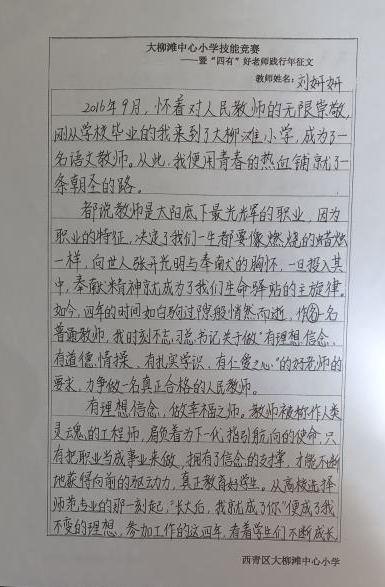 大柳滩中心小学技能竞赛
——暨“四有”好老师践行年征文
教师姓名：刘妍妍
2016年9月，怀着对人民教师的无限崇敬，
刚从学校毕业的我来到了大柳滩小学，成为了一
名语文教师。从此，我便用青春的热血铺就了一
条朝圣的路。
都说教师是太阳底下最光辉的职业，因为
职业的特征，决定了我们一生都要像燃烧的蜡烛
一样，向世人张开光明与奉献的胸怀，一旦投入其
中，奉献精神就成为了我们生命驿站的主旋律。
如今，四年的时间如白驹过隙般悄然而逝，作为一名
普通教师，我时刻不忘习总书记关于做“有理想信念，
有道德情操，有扎实学识，有仁爱之心”的好老师的
要求，力争做一名真正合格的人民教师。
有理想信念，做幸福之师。教师被称作人类
灵魂的工程师，肩负着为下一代指引航向的使命，只
有把职业当成事业来做，拥有了信念的支撑，才能不断
地获得向前的驱动力，真正教育好学生。从高校选择
师范专业的那一刻起，“长大后，我就成了你”便成了我
不变的理想，参加工作的这四年，看着学生们不断成长，
西青区大柳滩中心小学